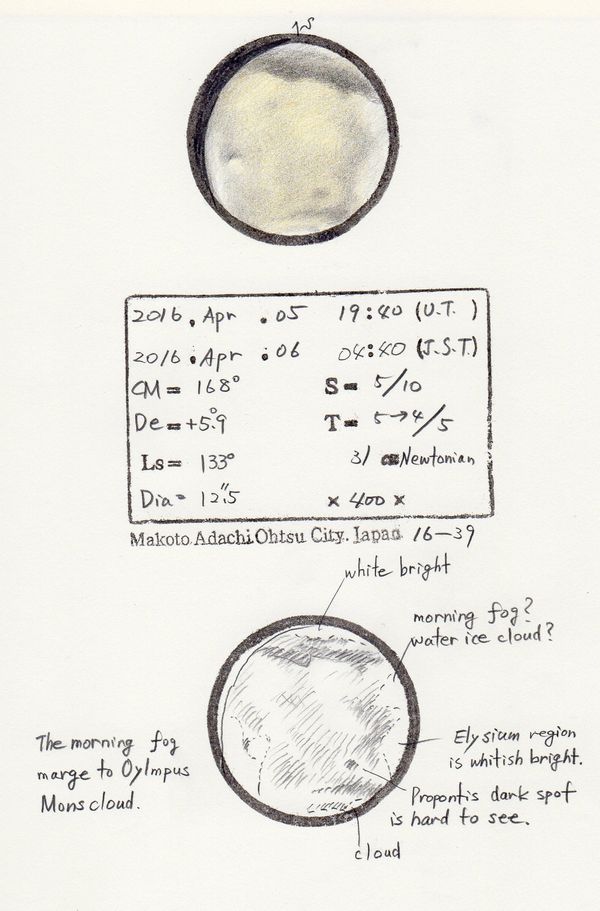 2016. Apr . 05 19:40 (U.T. )
2016. Apr : 06 04:40 (J.S.T.)
CM= 168° S= 5/10
De=+5°.9 T= 5→4/5
Ls= 133° 31 Newtonian
Dia= 12".5 × 400 ×
Makoto Adachi Ohtsu City. Japan 16-39
white bright
morning fog?
water ice cloud?
The morning fog
marge to Oylmpus
Mons cloud.
Elysium region
is whitish bright.
Propontis dark spot
is hard to see.
cloud